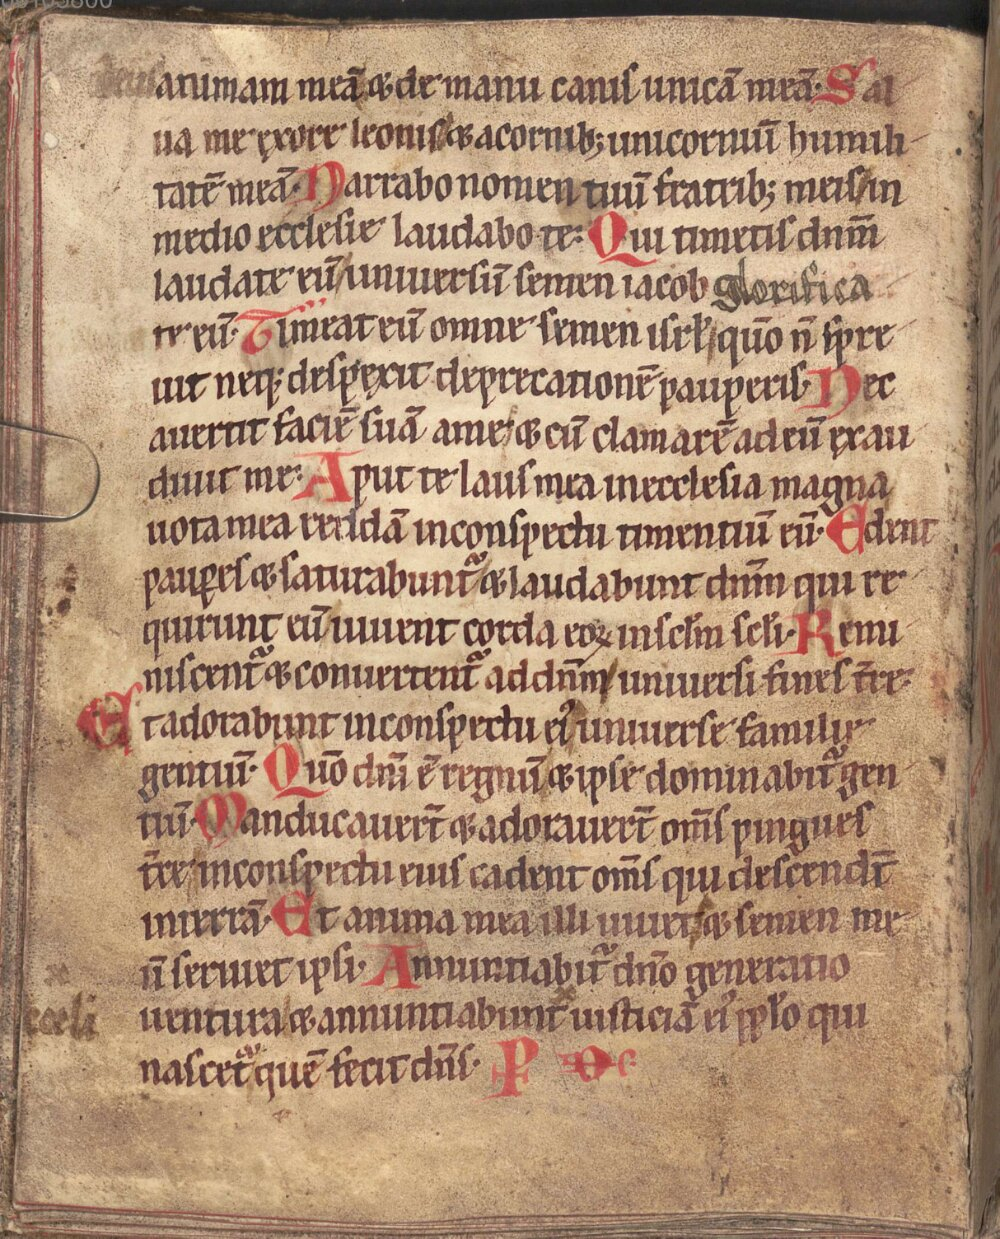 animam meā & de manu canis unicā meā. Sal
ua me exore leonis & acornib; unicorniū humili
tatē meā. Narrabo nomen tuū fratrib; meis in
medio ecclesie laudabo te: Qui timetis dnm̄
laudate eū uniuersū semen iacob glorifica
te eū. Timeat eū omne semen isrl̄ quō n̄ spre
uit neq; despexit deprecationē pauperis. Nec
auertit faciē suā ame & cū clamarē ad eū exau
diuit me. Aput te laus mea in ecclesia magna
uota mea reddā inconspectu timentiū eū. Edent
paup̄es & saturabunt᷑ & laudabunt dnm̄ qui re
quirunt eū uiuent corda eoꝝ insclm̄ scli. Remi
niscent᷑ & conuertent᷑ ad dn̄m uniuersi fines tr̄e.
Et adorabunt inconspectu ei᷒ uniuerse familie
gentiū. Quō dnī ē regnū & ipse dominabit᷑ gen
tiū. Manducauerт̄ & adorauerт̄ om̄s pingues
tr̄e inconspectu eius cadent om̄s qui descendт̄
interrā. Et anima mea illi uiuet & semen me
ū seruiet ipsi. Annuntiabit᷑ dn̄o generatio
uentura & annuntiabunt iusticiā ei᷒ ppl̄o qui
nascet᷑ quē fecit dn̄s. P